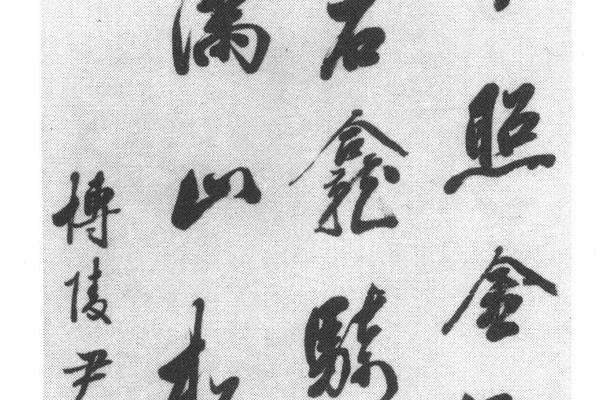 照金
石龕騎
滿山
博陵尹